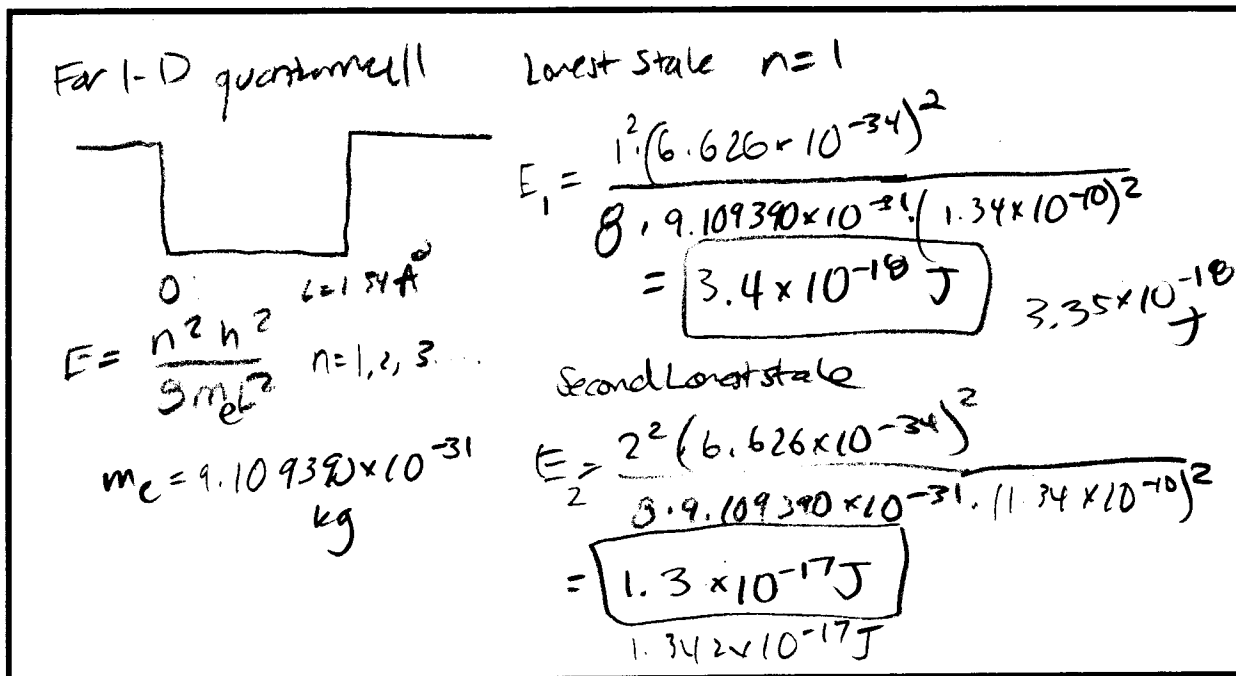 For 1-D quantumwell
0 L=1.34 A°
E = n² h² / 8 mₑL² n=1, 2, 3....
mₑ = 9.109390×10⁻³¹
kg
Lowest State n=1
E₁ = 1²·(6.626×10⁻³⁴)² / 8 · 9.109390×10⁻³¹·(1.34×10⁻¹⁰)²
= 3.4×10⁻¹⁸ J
3.35×10⁻¹⁸
J
Second Lowest state
E₂ = 2² (6.626×10⁻³⁴)² / 8·9.109390×10⁻³¹·(1.34×10⁻¹⁰)²
= 1.3×10⁻¹⁷ J
1.342×10⁻¹⁷ J